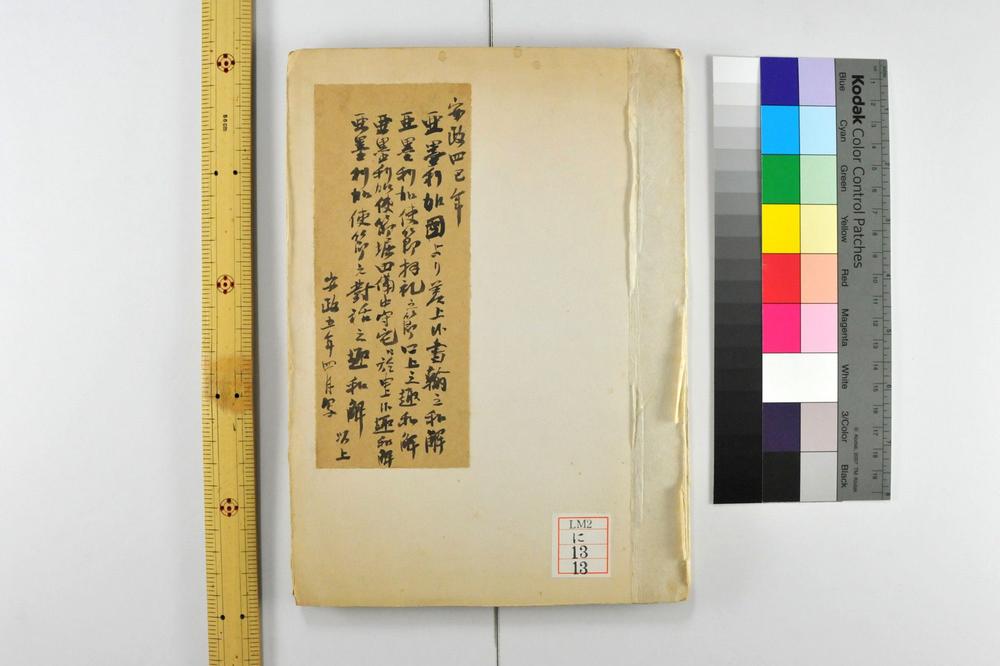 安政四巳年
亜墨利加国より差上候書翰之和解
亜墨利加使節拝礼之節口上之趣和解
亜墨利加使節堀田備中守宅ニ於て申上候趣和解
亜墨利加使節之対話之趣和解
以上
安政五年四月写
LM2
に
13
13
Kodak Color Control Patches
Blue
Cyan
Green
Yellow
Red
Magenta
White
3/Color
Black